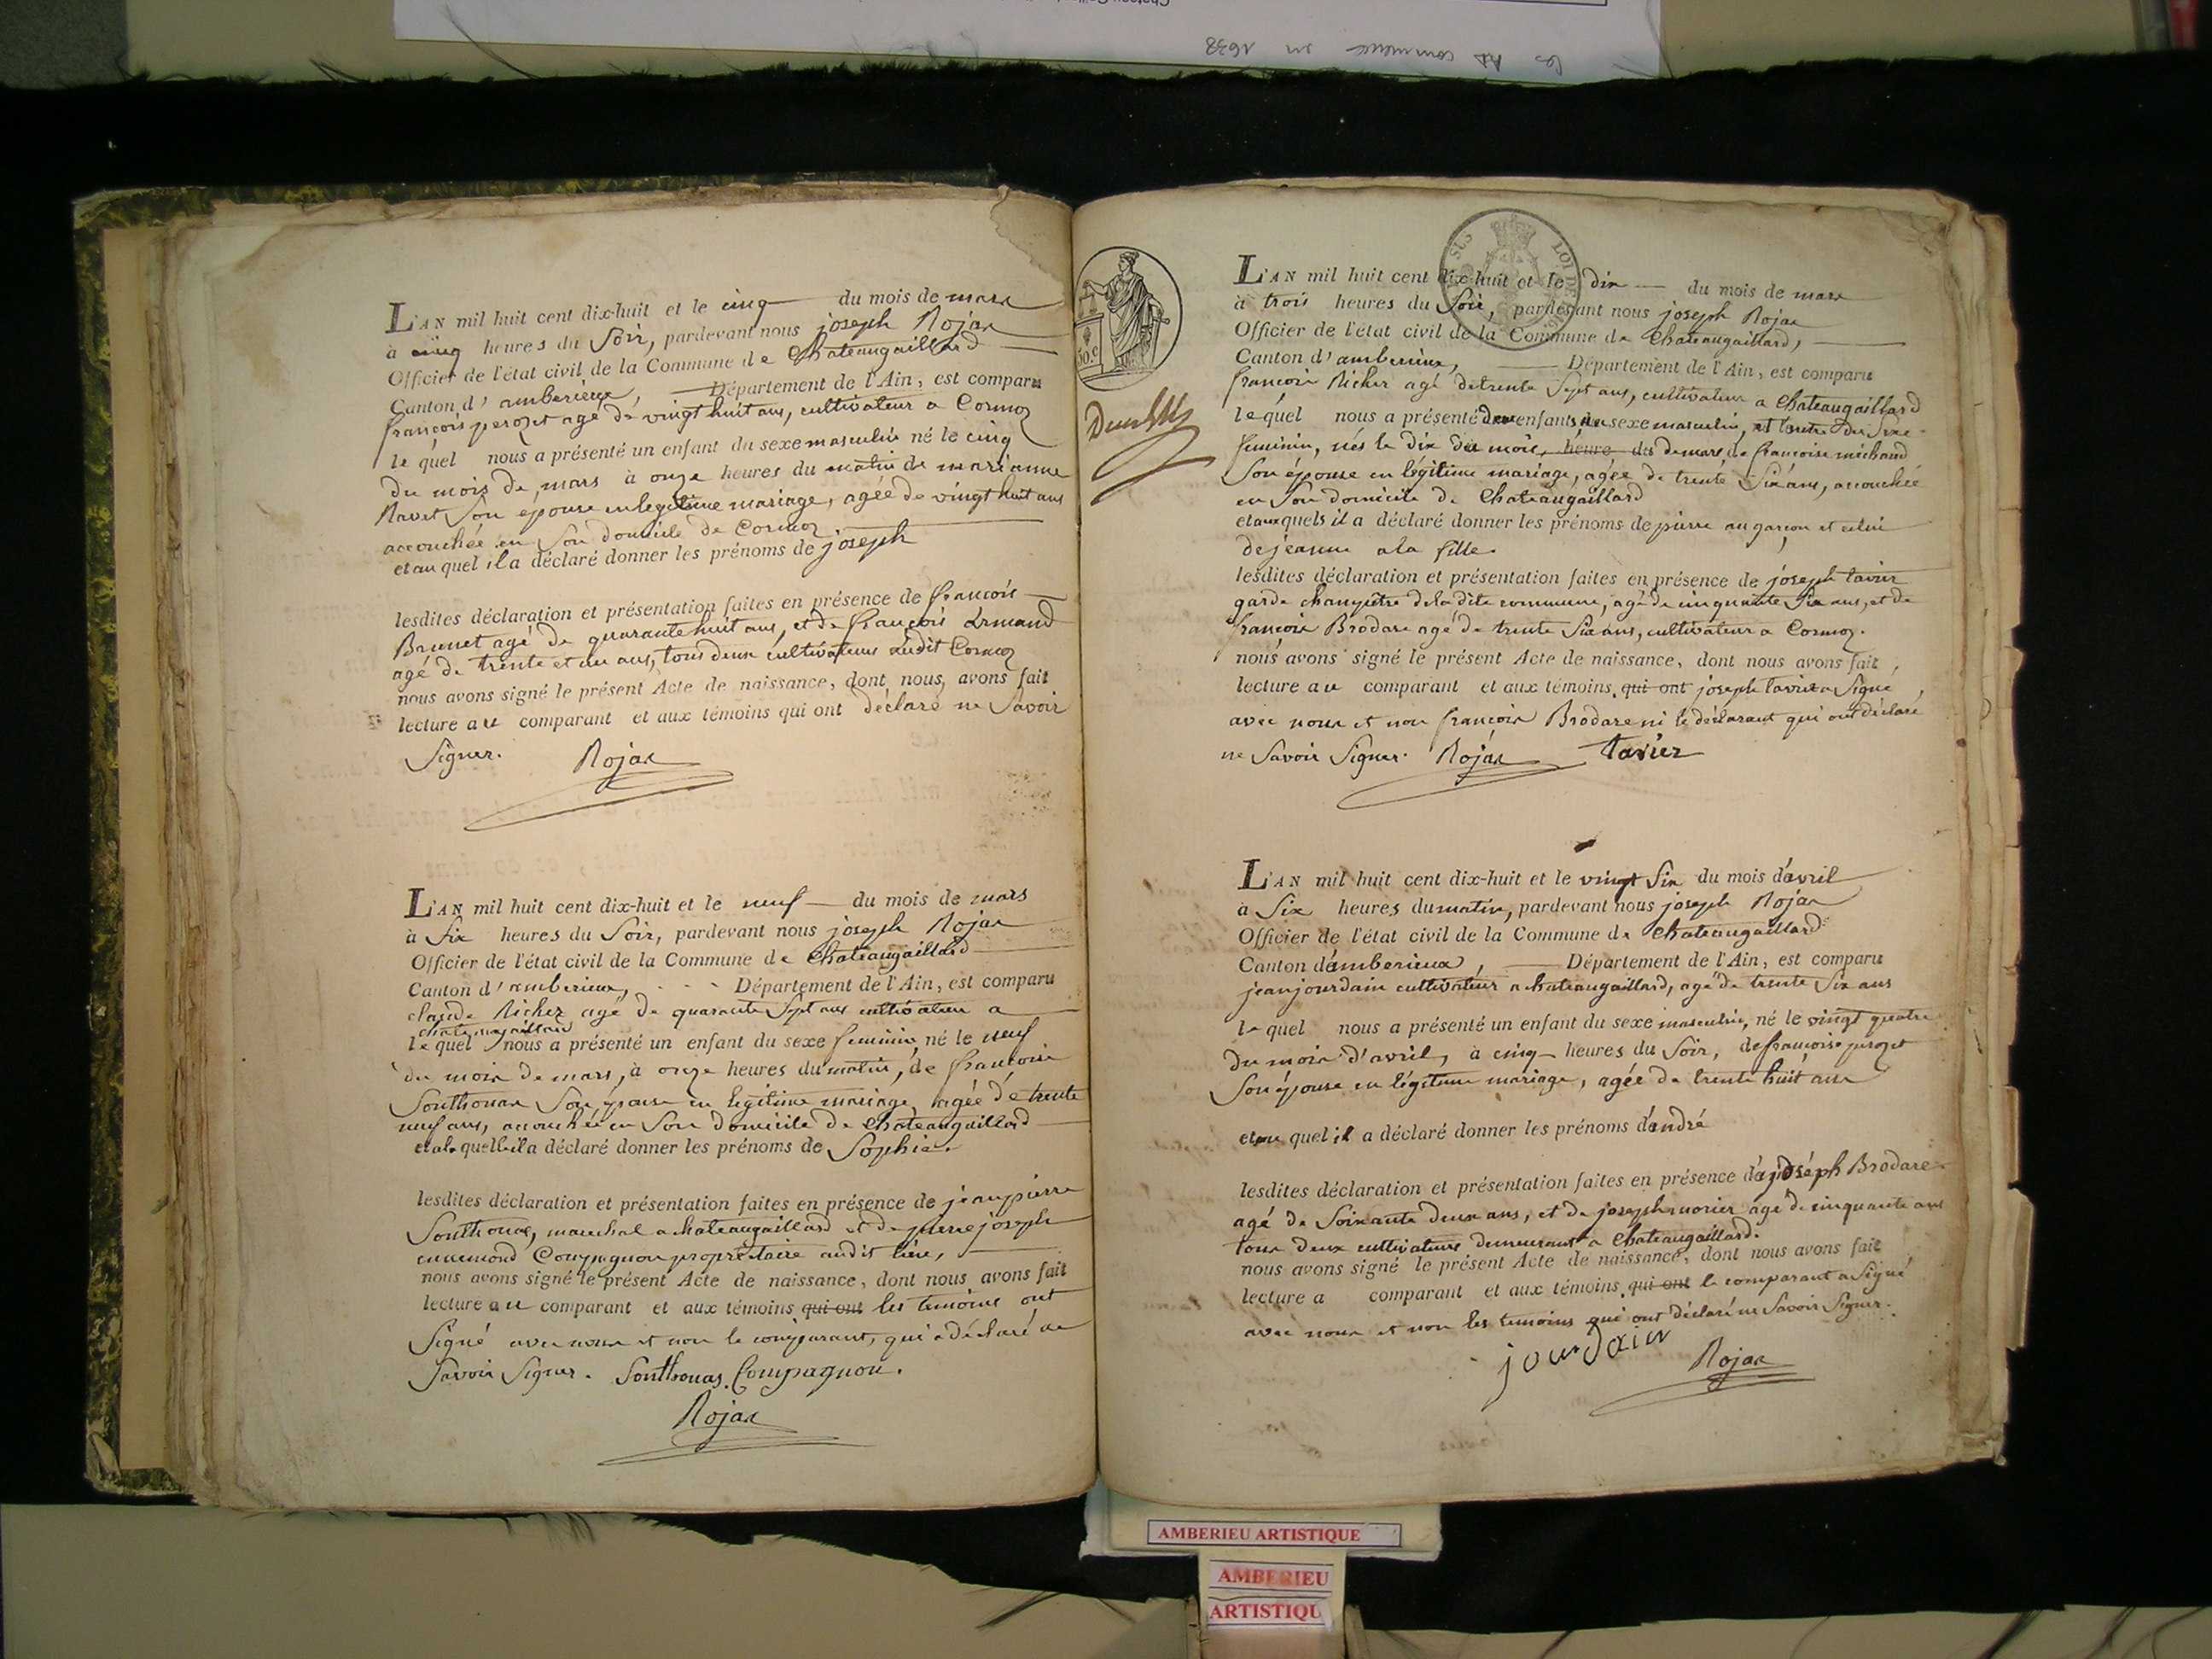 les AD commence en 1638
L'AN mil huit cent dix-huit et le cinq du mois de mars
à cinq heures du Soir, pardevant nous joseph Rojas
Officier de l'état civil de la Commune de Chateaugaillard
Canton d'amberieux, Département de l'Ain, est comparu
françois perozet agé de vingt huit ans, cultivateur a Cormoz
le quel nous a présenté un enfant du sexe masculin né le cinq
du mois de mars à onze heures du matin de marianne
Ravet Son epouse en legitime mariage, agée de vingt huit ans
accouchée en Son domicile de Cormoz
et au quel il a déclaré donner les prénoms de joseph
lesdites déclaration et présentation faites en présence de françois
Brunet agé de quarante huit ans, et de françois Armand
agé de trente et un ans, tous deux cultivateurs audit Cormoz
nous avons signé le présent Acte de naissance, dont nous avons fait
lecture au comparant et aux témoins qui ont déclaré ne Savoir
Signer. Rojas
L'AN mil huit cent dix-huit et le neuf du mois de mars
à Six heures du Soir, pardevant nous joseph Rojas
Officier de l'état civil de la Commune de Chateaugaillard
Canton d'amberieux, Département de l'Ain, est comparu
claude Richer agé de quarante Sept ans cultivateur a
chateaugaillard
le quel nous a présenté un enfant du sexe feminin, né le neuf
du mois de mars, à onze heures du matin, de francoise
Southonax Son epouse en legitime mariage agée de trente
neuf ans, accouchée en Son domicile de Chateaugaillard
et à la quelle il a déclaré donner les prénoms de Sophie.
lesdites déclaration et présentation faites en présence de jean pierre
Southonas, marechal a chateaugaillard et de pierre joseph
ennemond Compagnon propriétaire audit lieu,
nous avons signé le présent Acte de naissance, dont nous avons fait
lecture au comparant et aux témoins qui ont les temoins ont
Signé avec nous et non le comparant, qui a déclaré ne
Savoir Signer. Southonas Compagnon.
Rojas
30.c
LOI DE
L'AN mil huit cent dix-huit et le dix du mois de mars
à trois heures du Soir, pardevant nous joseph Rojas
Officier de l'état civil de la Commune de Chateaugaillard,
Canton d'amberieux, Département de l'Ain, est comparu
françois Richer agé de trente Sept ans, cultivateur a Chateaugaillard
le quel nous a présenté deux enfants, du sexe masculin, et l'autre du Sexe
feminin, nés le dix du mois, heure du de mars, de francoise michaud
Son épouse en légitime mariage, agée de trente Six ans, accouchée
en Son domicile de Chateaugaillard
et aux quels il a déclaré donner les prénoms de pierre au garçon et celui
de jeanne a la fille.
lesdites déclaration et présentation faites en présence de joseph tavier
garde champêtre de la dite commune, agé de cinquante Six ans, et de
françois Brodare agé de trente Six ans, cultivateur a Cormoz.
nous avons signé le présent Acte de naissance, dont nous avons fait
lecture au comparant et aux témoins qui ont joseph tavier a Signé
avec nous et non françois Brodare ni le déclarant qui ont déclaré
ne Savoir Signer. Rojas tavier
L'AN mil huit cent dix-huit et le vingt Six du mois d'avril
à Six heures du matin, pardevant nous joseph Rojas
Officier de l'état civil de la Commune de Chateaugaillard
Canton d'amberieux, Département de l'Ain, est comparu
jean jourdain cultivateur a chateaugaillard, agé de trente Six ans
le quel nous a présenté un enfant du sexe masculin, né le vingt quatre
du mois d'avril, à cinq heures du Soir, de françoise perozet
Son épouse en légitime mariage, agée de trente huit ans
et au quel il a déclaré donner les prénoms d'andré
lesdites déclaration et présentation faites en présence de joséph Brodare
agé de Soixante deux ans, et de joseph morier agé de cinquante ans
tous deux cultivateurs demeurant a Chateaugaillard.
nous avons signé le présent Acte de naissance, dont nous avons fait
lecture a comparant et aux témoins qui ont le comparant a Signé
avec nous et non les temoins qui ont déclaré ne Savoir Signer.
jourdain Rojas
AMBERIEU ARTISTIQUE
AMBERIEU
ARTISTIQU